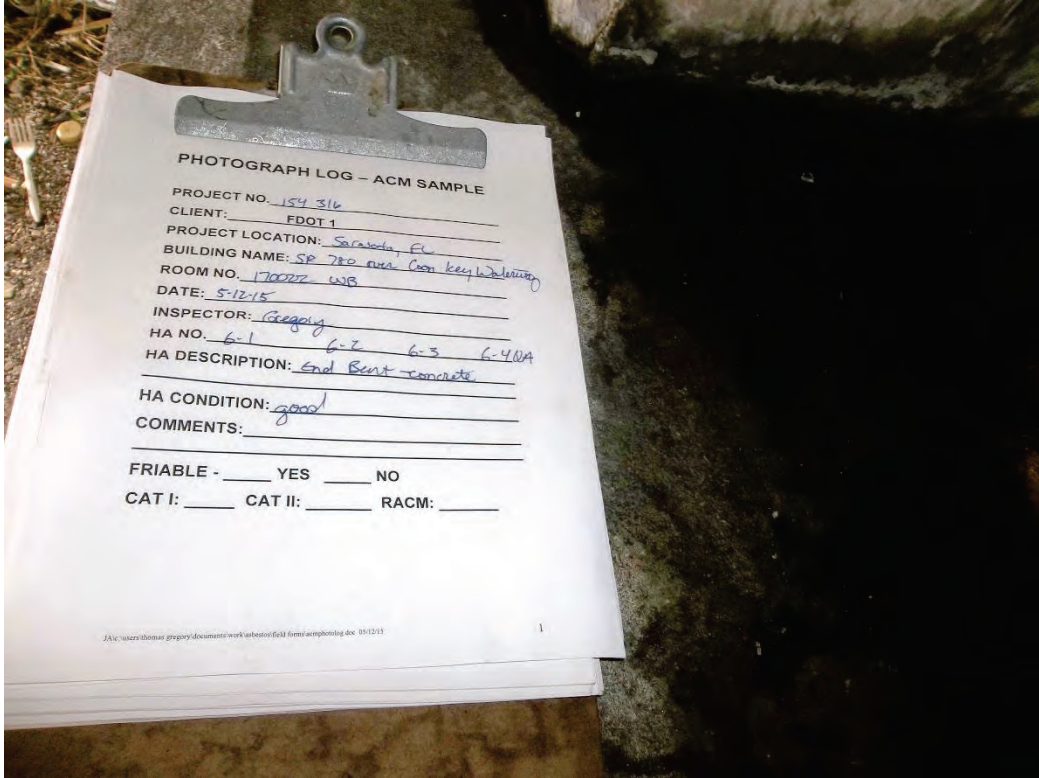 PHOTOGRAPH LOG – ACM SAMPLE
PROJECT NO. 154 316
CLIENT: FDOT 1
PROJECT LOCATION: Sarasota, FL
BUILDING NAME: SR 780 over Coon Key Waterway
ROOM NO. 170022 WB
DATE: 5-12-15
INSPECTOR: Gregory
HA NO. 6-1 6-2 6-3 6-4QA
HA DESCRIPTION: End Bent concrete
HA CONDITION: good
COMMENTS:
FRIABLE - YES NO
CAT I: CAT II: RACM:
JA\c:\users\thomas gregory\documents\work\asbestos\field forms\acmphotolog.doc 05/12/15
1